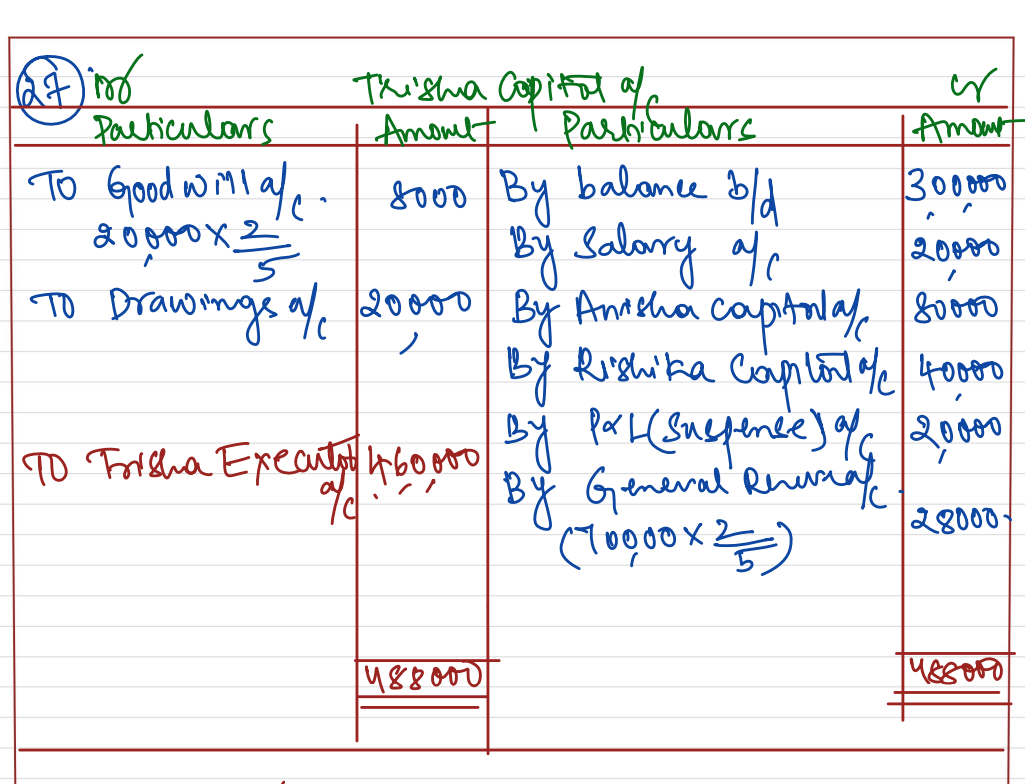 27 Dr Trisha Capital a/c Cr
Particulars Amount Particulars Amount
To Goodwill a/c. 8000 By balance b/d 300000
20,000 × 2/5 By Salary a/c 20,000
To Drawings a/c 20000 By Anisha Capital a/c 80000
By Rishika Capital a/c 40,000
By P&L (Suspense) a/c 20,000
To Trisha Executor a/c 460000 By General Reserve a/c.
(70,000 × 2/5) 28000
488000 488000